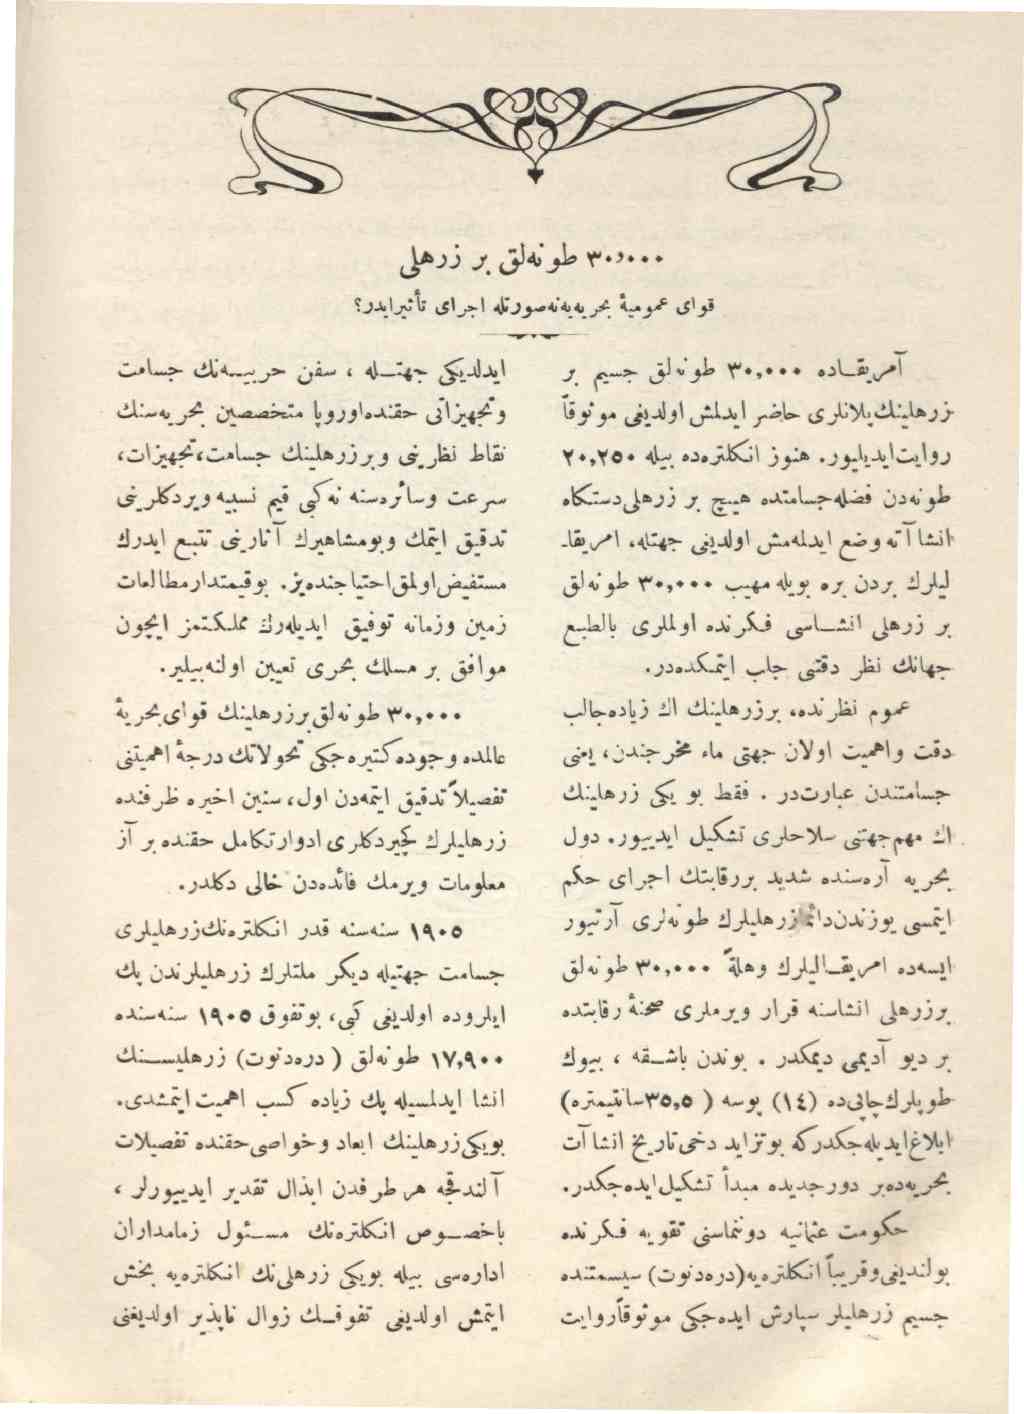 ٣٠,٠٠٠ طونه‌لق بر زرهلی
قوای عمومیهٔ بحریه‌یه نه صورتله اجرای تأثیر ایدر؟
آمریقـاده ٣٠,٠٠٠ طونه‌لق جسیم بر
زرهلینك پلانلری حاضر ایدلمش اولدیغی موثوقاً
روایت ایدیلیور. هنوز انكلتره‌ده بیله ٢٠,٢٥٠
طونه‌دن فضله جسامتده هیـچ بر زرهلی دستكاه
انشاآته وضع ایدلمه‌مش اولدیغی جهتله، امریقاـ
لیلرك بردن بره بویله مهیب ٣٠,٠٠٠ طونه‌لق
بر زرهلی انشـاسی فكرنده اولملری بالطبـع
جهانك نظر دقتنی جلب ایتمكده‌در.
عموم نظرنده، برزرهلینك اك زیاده جالب
دقت واهمیت اولان جهتی ماء مخرجندن، یعنی
جسامتندن عبارت‌در . فقط بو یكی زرهلینك
اك مهم جهتنی سلاحلری تشكیل ایدییور. دول
بحریه آره‌سنده شدید بررقابتك اجرای حكم
ایتمسی یوزندن دائما زرهلیلرك طونه‌لری آرتیور
ایسه‌ده امریقـالیلرك وهلةً ٣٠,٠٠٠ طونه‌لق
برزرهلی انشاسنه قرار ویرملری صحنهٔ رقابتده
بر دیو آدیمی دیمكدر . بوندن باشـقه ، بیوك
طوپلرك چاپی‌ده (١٤) پوسه ( ٣٥,٥سانتیمتره)
ابلاغ ایدیله‌جكدركه بوتزاید دخی تاریخ انشاآت
بحریه‌ده‌بر دورجدیده مبدأ تشكیل ایده‌جكدر.
حكومت عثمانیه دونماسنی تقویه فكرنده
بولندیغی وقریباً انكلتره‌یه (دره‌دنوت) سیستمنده
جسیم زرهلیلر سپارش ایده‌جكی موثوقاً روایت
ایدلدیكی جهتـله ، سفن حربیـه‌نك جسامت
وتجهیزاتی حقنده اوروپا متخصصین بحریه‌سنك
نقاط نظرینی وبر زرهلینك جسامت، تجهیزات،
سرعت وسائره‌سنه نه‌كبی قیم نسبیه ویردكلرینی
تدقیق ایتمك وبومشاهیرك آثارینی تتبـع ایدرك
مستفیض اولمق احتیاجنده‌یز. بوقیمتدارمطالعات
زمین وزمانه توفیق ایدیله‌رك مملكتمز ایچون
موافق بر مسلك بحری تعیین اولنه‌بیلیر.
٣٠,٠٠٠ طونه‌لق برزرهلینك قوای بحریهٔ
عالمده وجوده كتیره‌جكی تحولاتك درجهٔ اهمیتنی
تفصیلاً تدقیق ایتمه‌دن اول، سنین اخیره ظرفنده
زرهلیلرك كچیردكلری ادوار تكامل حقنده بر آز
معلومات ویرمك فائده‌دن خالی دكلدر.
١٩٠٥ سنه‌سنه قدر انكلتره‌نك زرهلیلری
جسامت جهتیله دیكر ملتلرك زرهلیلرندن پك
ایلروده اولدیغی كبی، بوتفوق ١٩٠٥ سنه‌سنده
١٧,٩٠٠ طونه‌لق ( دره‌دنوت) زرهلیسـنك
انشا ایدلمسیله پك زیاده كسب اهمیت ایتمشدی.
بویكی زرهلینك ابعاد وخواصی حقنده تفصیلات
آلندقجه هر طرفدن ابذال تقدیر ایدییورلر ،
باخصـوص انكلتره‌نك مسـئول زمامداران
اداره‌سی بیله بویكی زرهلی‌نك انكلتره‌یه بخش
ایتمش اولدیغی تفوقـك زوال ناپذیر اولدیغنی